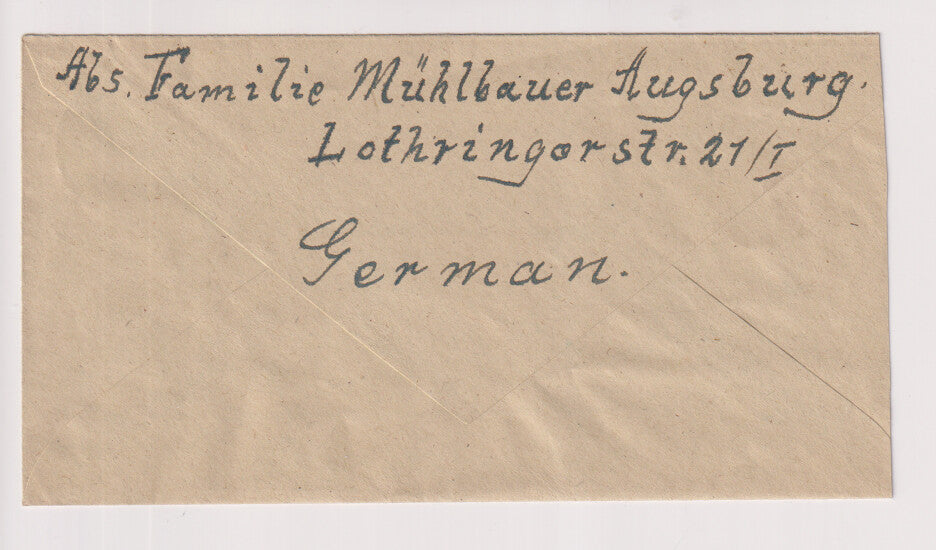 Abs. Familie Mühlbauer Augsburg.
Lothringorstr. 21/I
German.